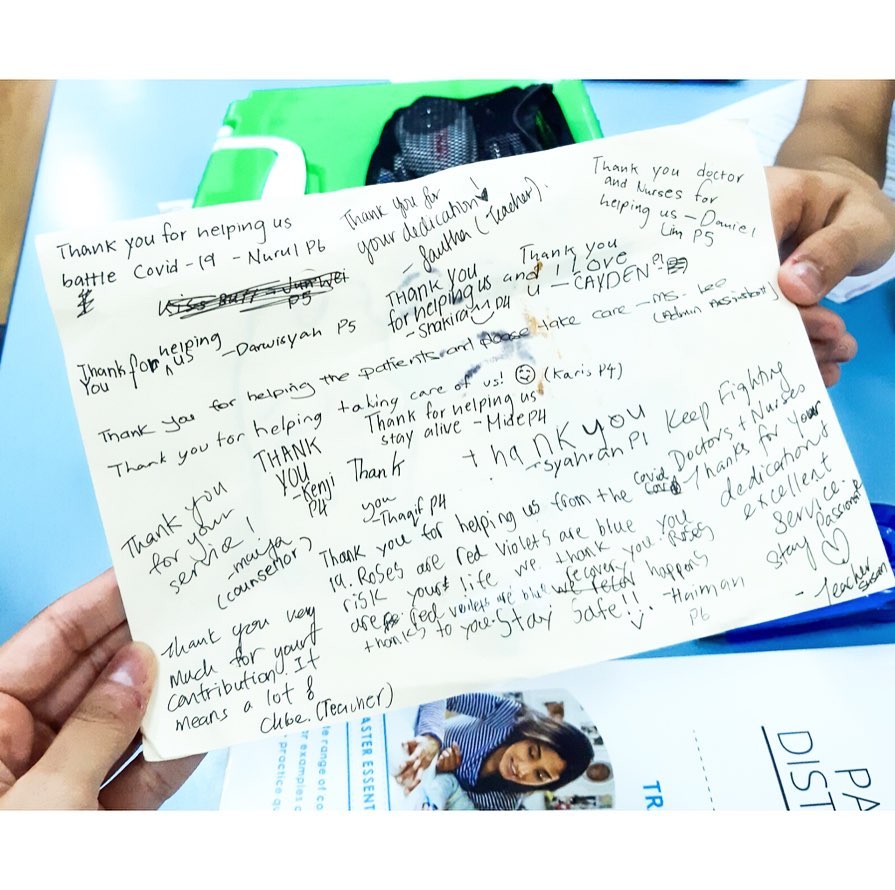 Thank you for helping us
battle Covid-19 - Nurul P6
Thank you for
your dedication!
(Teacher).
Thank you doctor
and Nurses for
helping us - Daniel
Lim P5
Kiss Butt - Jun Wei
P5
THANK YOU
for helping us
- Shakira P4
Thank you
and I love
u - CAYDEN P1
Thank you for helping us - Darwisyah P5
Thank you for helping the patients and please take care - Ms. Lee
(Admin Assistant)
Thank you for helping taking care of us! (Karis P4)
Thank for helping us
stay alive - Mide P4
THANK
YOU
- Kenji
P4
Thank
you
- Thaqif P4
thank you
- Syahran P1
Keep Fighting
Doctors + Nurses
Thanks for your
dedication &
excellent
service.
Stay Passionate
- Teacher
Susan
Thank you
for your
service!
- maiya
(counsellor)
Thank you for helping us from the covid
19. Roses are red violets are blue you
risk your life we thank you. Roses
are red violets are blue recovery happens
thanks to you. Stay Safe!! - Haiman
P6
Thank you very
much for your
contribution. It
means a lot
Chloe. (Teacher)
ASTER ESSENT
le range of co
r examples
practice qu
TR
PA
DIST